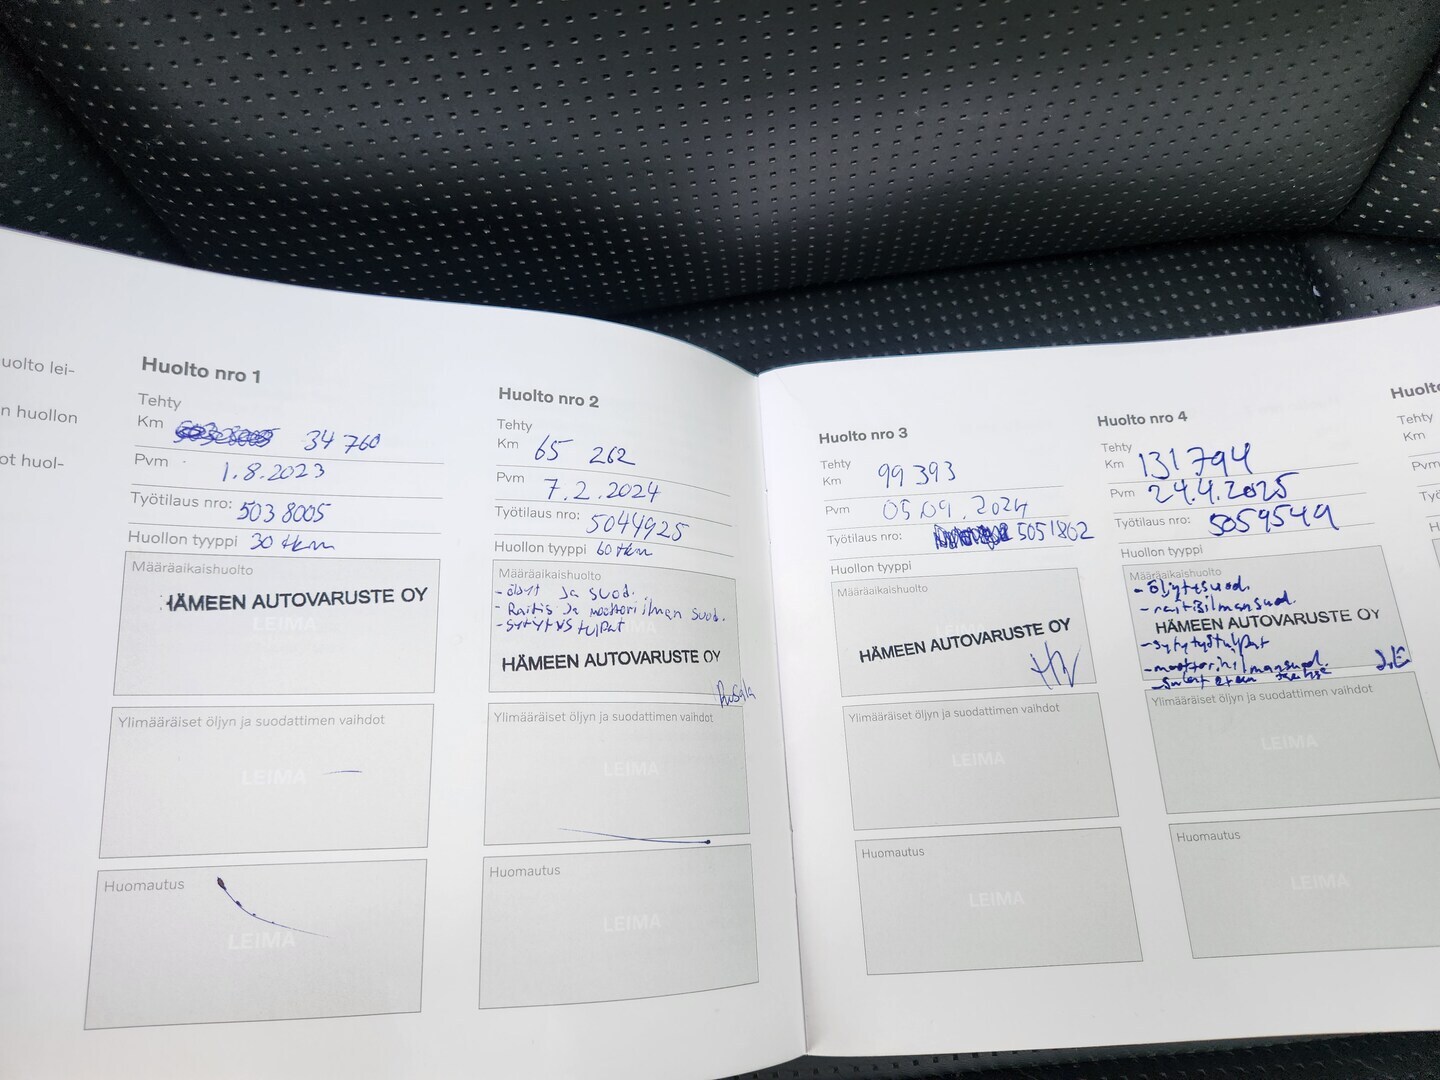 uolto lei-
n huollon
ot huol-
Huolto nro 1
Tehty
Km 34 760
Pvm 1.8.2023
Työtilaus nro: 5038005
Huollon tyyppi 30 tkm
Määräaikaishuolto
HÄMEEN AUTOVARUSTE OY
LEIMA
Ylimääräiset öljyn ja suodattimen vaihdot
LEIMA
Huomautus
LEIMA
Huolto nro 2
Tehty
Km 65 262
Pvm 7.2.2024
Työtilaus nro: 5044925
Huollon tyyppi 60 tkm
Määräaikaishuolto
- öljyt ja suod.
- Raitis ja moottori ilman suod.
- sytytys tulpat
LEIMA
HÄMEEN AUTOVARUSTE OY
Ylimääräiset öljyn ja suodattimen vaihdot
LEIMA
Huomautus
LEIMA
Huolto nro 3
Tehty
Km 99 393
Pvm 05.09.2024
Työtilaus nro: 5051802
Huollon tyyppi
Määräaikaishuolto
HÄMEEN AUTOVARUSTE OY
Ylimääräiset öljyn ja suodattimen vaihdot
LEIMA
Huomautus
LEIMA
Huolto nro 4
Tehty
Km 131 794
Pvm 24.4.2025
Työtilaus nro: 5059549
Huollon tyyppi
Määräaikaishuolto
- öljyt+suod.
- raitisilmansuod.
HÄMEEN AUTOVARUSTE OY
- sytytystulpat
- moottorinilmansuod.
Ylimääräiset öljyn ja suodattimen vaihdot
LEIMA
Huomautus
LEIMA
Huolto
Tehty
Km